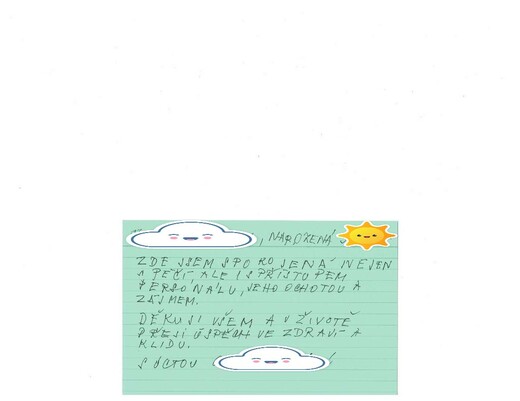 , NAROZENÁ
ZDE JSEM SPOKOJENÁ NEJEN
S PÉČÍ, ALE I S PŘÍSTUPEM
PERSONÁLU, JEHO OCHOTOU A
ZÁJMEM.
DĚKUJI VŠEM A V ŽIVOTĚ
PŘEJI ÚSPĚCH VE ZDRAVÍ A
KLIDU.
S ÚCTOU